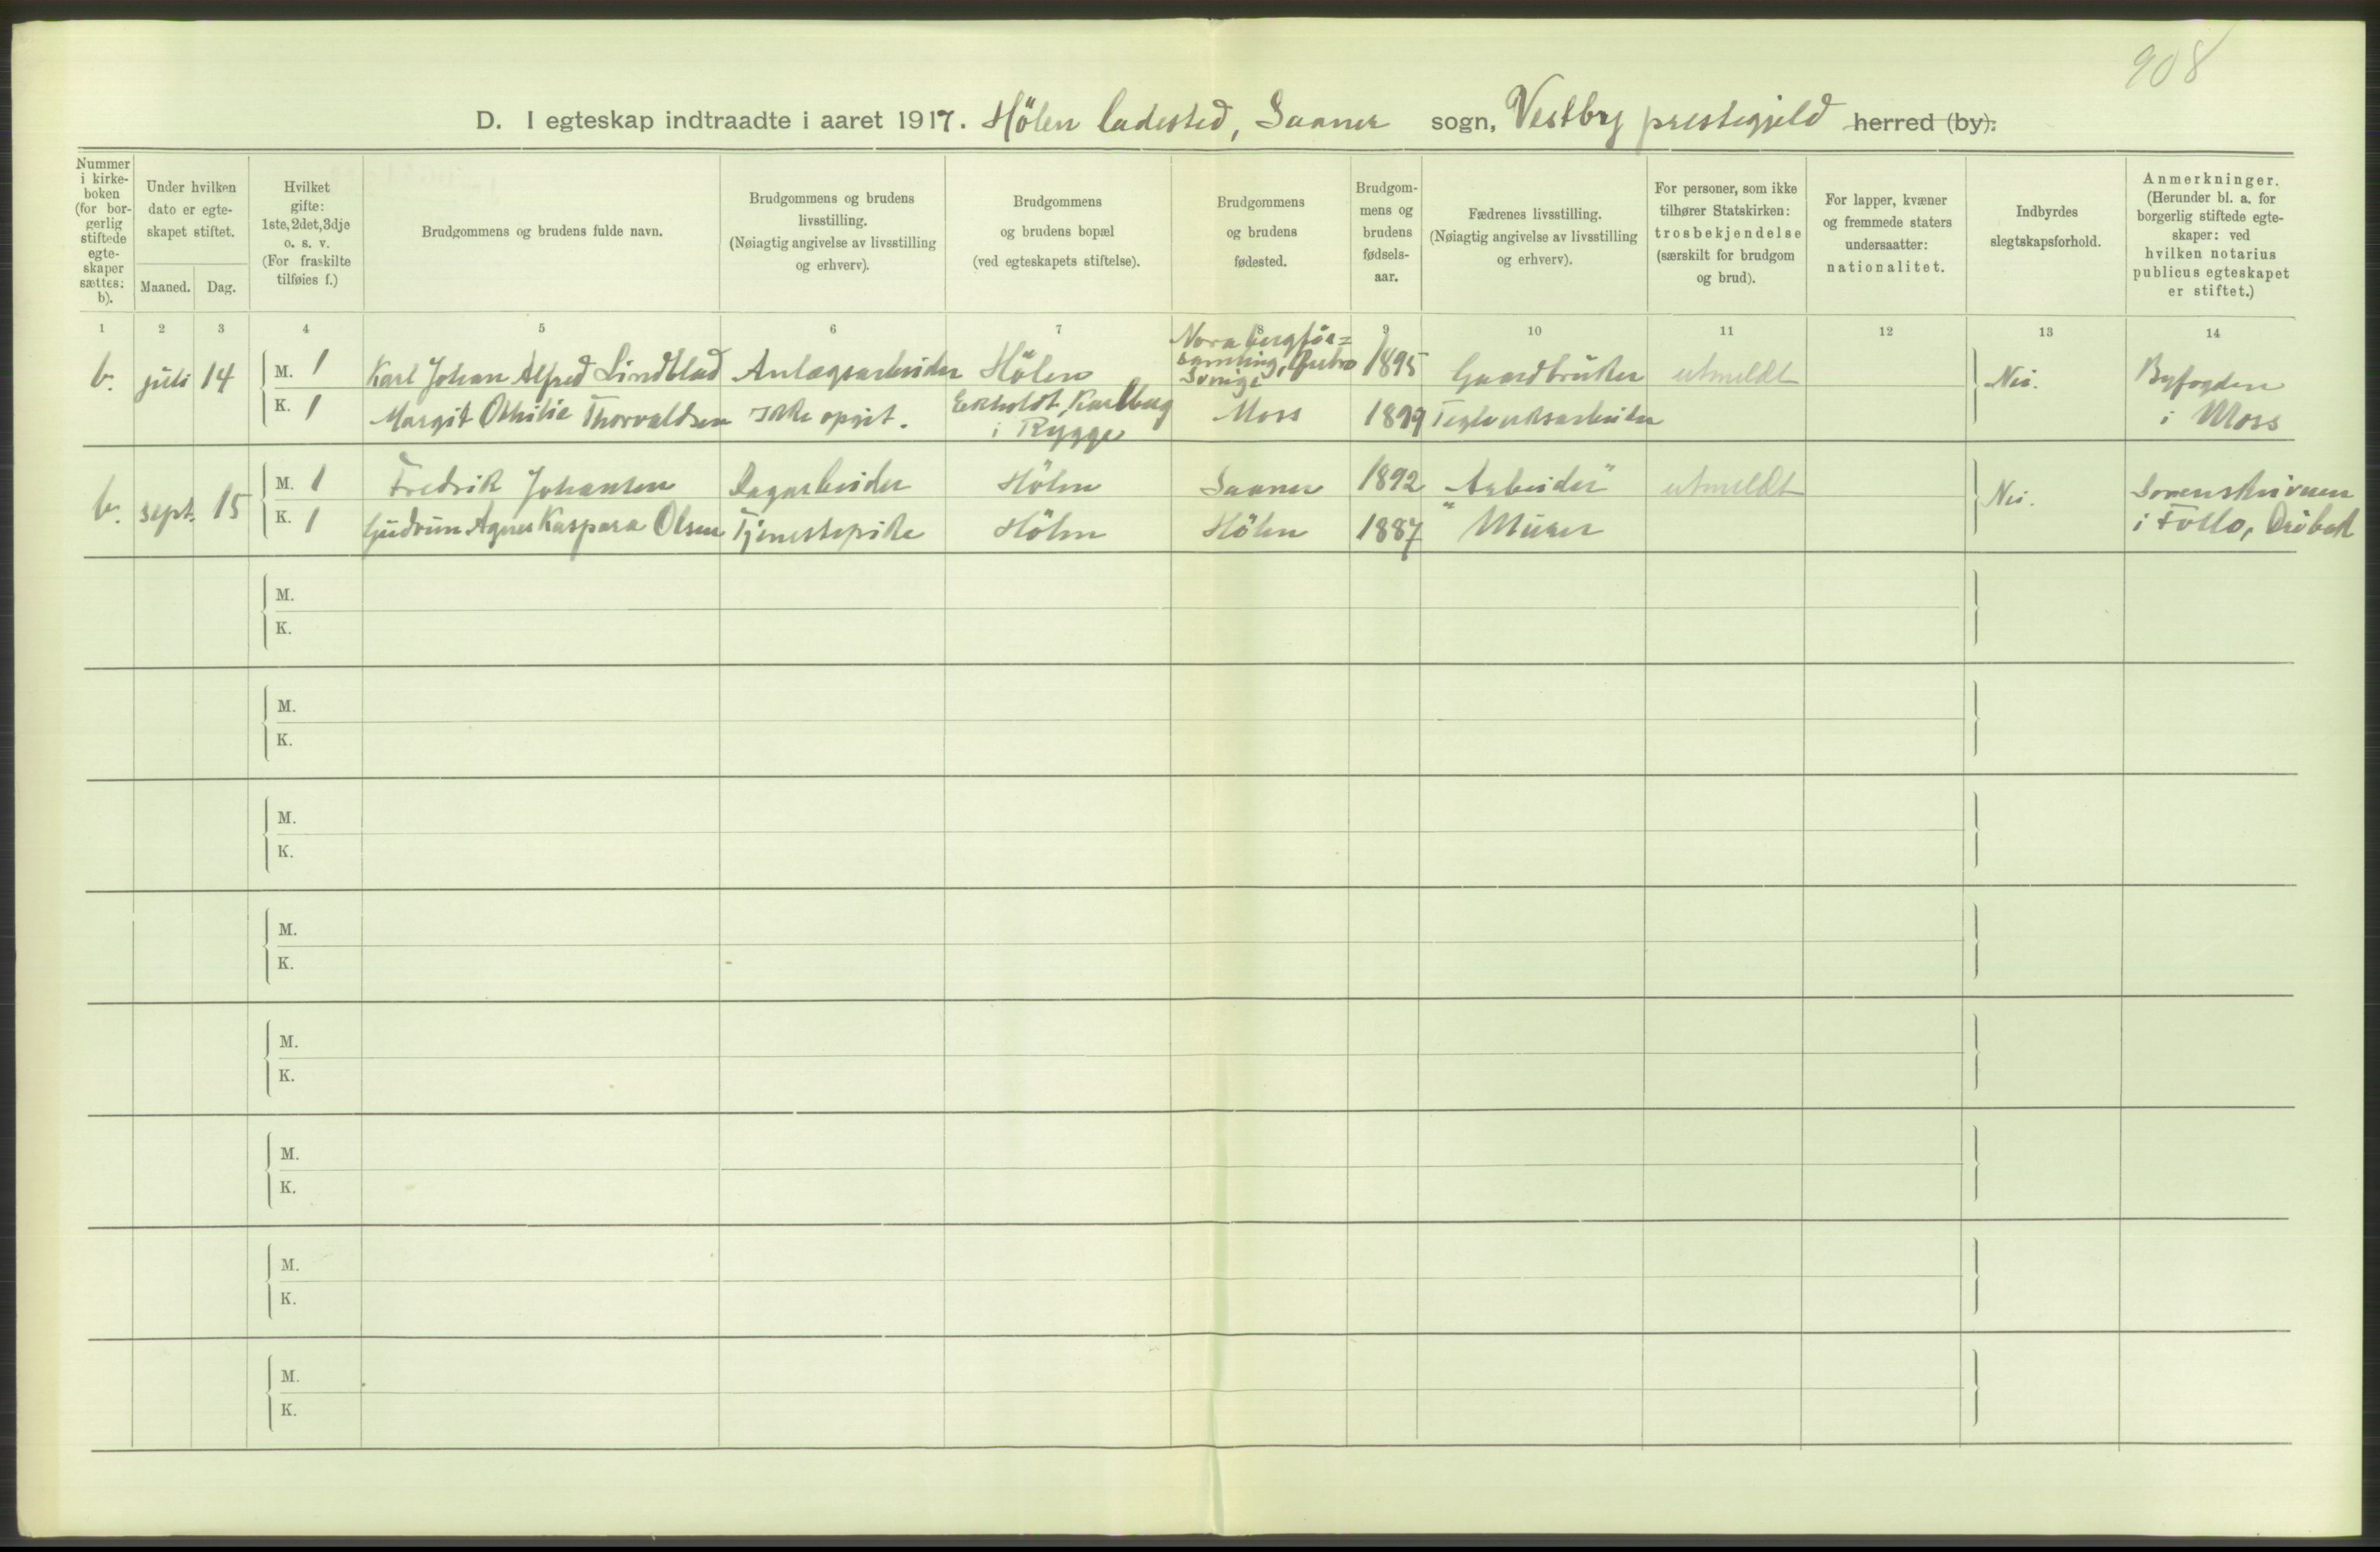 908
D. I egteskap indtraadte i aaret 1917. Hölen ladested, Saaner sogn, Vestby prestegjeld herred (by).
Nummer i kirkeboken (for borgerlig stiftede egteskaper sættes: b).
Under hvilken dato er egteskapet stiftet.
Maaned. Dag.
Hvilket gifte: 1ste, 2det, 3dje o. s. v. (For fraskilte tilføies f.)
Brudgommens og brudens fulde navn.
Brudgommens og brudens livsstilling. (Nøiagtig angivelse av livsstilling og erhverv).
Brudgommens og brudens bopæl (ved egteskapets stiftelse).
Brudgommens og brudens fødested.
Brudgommens og brudens fødselsaar.
Fædrenes livsstilling. (Nøiagtig angivelse av livsstilling og erhverv).
For personer, som ikke tilhører Statskirken: trosbekjendelse (særskilt for brudgom og brud).
For lapper, kvæner og fremmede staters undersaatter: nationalitet.
Indbyrdes slegtskapsforhold.
Anmerkninger. (Herunder bl. a. for borgerlig stiftede egteskaper: ved hvilken notarius publicus egteskapet er stiftet.)
1 2 3 4 5 6 7 8 9 10 11 12 13 14
b. juli 14 M. 1 Karl Johan Alfred Lindblad Anlægsarbeider Hölen Nora bergför=
samling, Örebro
Sverige 1895 Gaardbruker utmeldt Nei. Byfogden
K. 1 Margit Othilie Thorvaldsen Ikke opgit. Ekholdt, Karlberg
i Rygge Moss 1899 Teglverksarbeider i Moss
b. sept. 15 M. 1 Fredrik Johansen Dagarbeider Hölen Saaner 1892 "Arbeider" utmeldt Nei. Sorenskriveren
K. 1 Gudrun Agnes Kaspara Olsen Tjenestepike Hölen Hölen 1887 " Murer i Follo, Dröbak
M.
K.
M.
K.
M.
K.
M.
K.
M.
K.
M.
K.
M.
K.
M.
K.